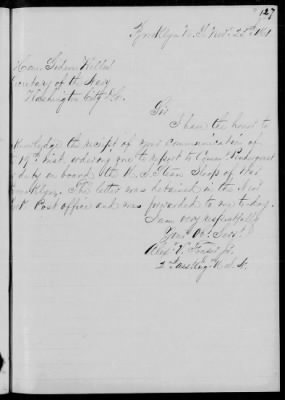 127
Brooklyn N.Y. Nov. 22nd 1861
Hon. Gideon Welles
Secretary of the Navy
Washington City D.C.
Sir
I have the honor to
knowledge the receipt of your communication of
19th inst. ordering me to report to Comr.
duty on board the U.S. Steam Sloop of War
Brooklyn. The letter was detained in the New
Post office and was forwarded to me to-day.
I am very respectfully
Your Obt. Servt.
Alex. V. Fraser Jr.